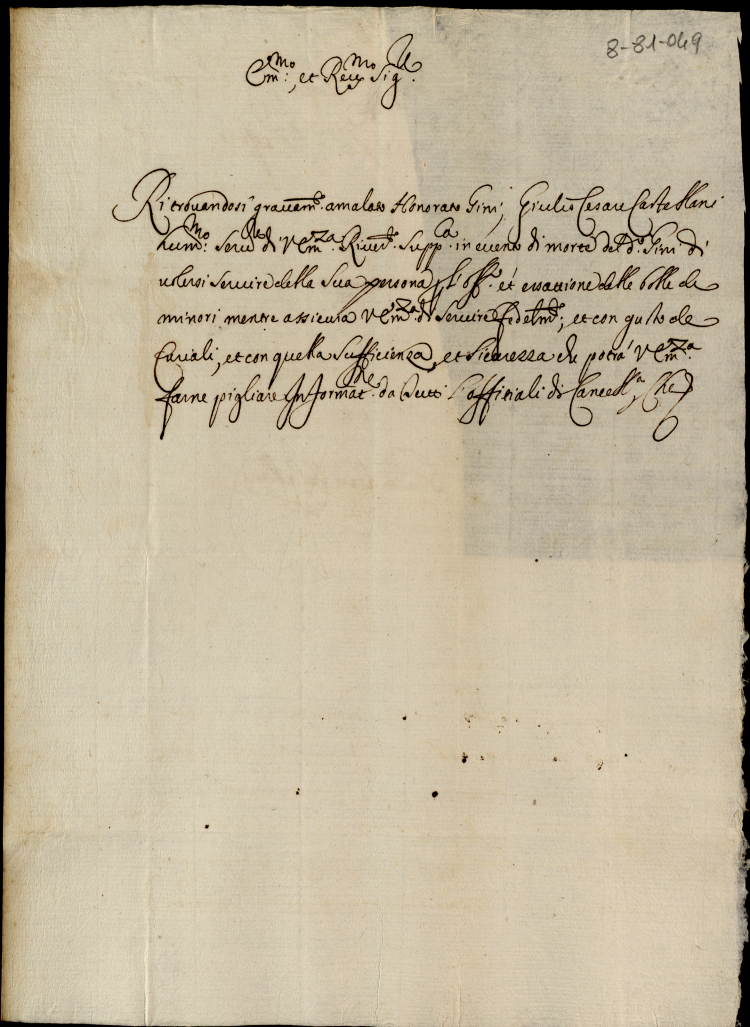 8-81-049
Em:mo, et Reu.mo Sig.r
Ritrouandosi grauem.te amalato Honorato Gini, Giulio Cesare Castellani
hum:mo Seru.re di V Em.za Riuer.te Supp.ca in euento di morte del d.o Gini di
uolersi Seruire della Sua persona p l'off.o et essattione delle bolle de
minori mentre assicura V Em.za di Seruire fidelm.te, et con gusto de
Curiali, et con quella Sufficienza, et Sicurezza che potrà V Em.za
farne pigliare Informat.ne da tutti l'offitiali di Cancell.a Che